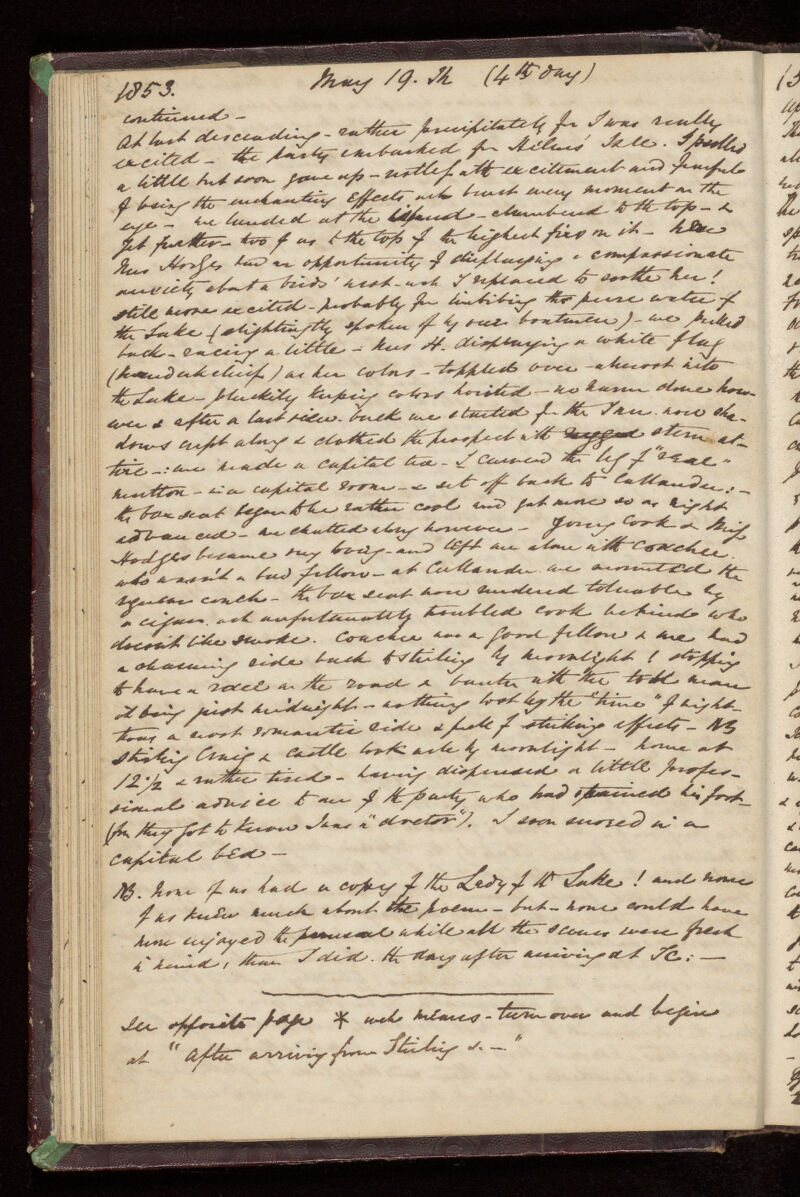 1853. May 19. Th (4th day)
continued -
At last descending - rather precipitately for I was really
excited - the party embarked for Hellens' Isle. I pulled
a little but soon gave up - restless with excitement and fearful
of losing the enchanting effects wh burst every moment on the
eye - we landed at the island - clambered to the top - &
got further - two of us to the top of the highest firs on it - here
Miss Hodges had an opportunity of displaying a compassionate
anxiety about a birds' nest - wh I replaced to soothe her!
still more excited - probably for imbibing the pure water of
the Lake (slightingly spoken of by our boatmen) - we pulled
back - racing a little - Miss H. displaying a white flag
(handkerchief) as her colors - toppled over - almost into
the Lake - pluckily keeping colors hoisted - no harm done how-
ever & after a last view back we started for the Inn. now sha-
dows crept along & clothed the prospect with rugged stern at-
tire -: we made a capital tea - I carved the leg of "real"
mutton - in a capital room - & set off back to Callander: -
the box seat began to be rather cool and got more so as night
advanced - we chatted along however - young Cook & Miss
Hodges became very loving - and left me alone with coachee
who wasn't a bad fellow - at Callander we mounted the
regular coach - the box seat now rendered tolerable by
a cigar. wh unfortunately troubled Cook behind who
doesn't like smoke. Coachee was a good fellow & we had
a charming ride back to Stirling by moonlight! stopping
to have a race on the road & banter with the toll man
it being just midnight - nothing lost by the "time" of night -
thus a most romantic ride & full of striking effects - NB
Stirling Craig & castle look well by moonlight - home at
12 1/2 & rather tired - having dispensed a little profes-
sional advice to one of the party who had sprained his foot -
(for they got to know I was a "doctor"). I soon snored in a
capital bed -
NB. None of us had a copy of the Lady of the Lake! and none
of us knew much about the poem - but - none could have
more enjoyed the perusal while all the scenes were fresh
in mind, than I did. the day after arriving at :-
See opposite page * wch means - turn over and begin
at "After arriving from Stirling &. -"